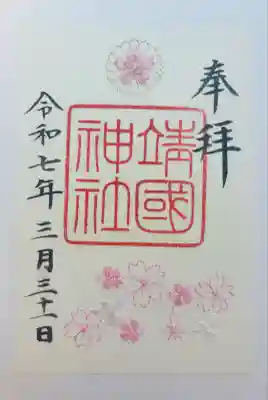 奉拝
靖國
神社
令和七年 三月三十一日